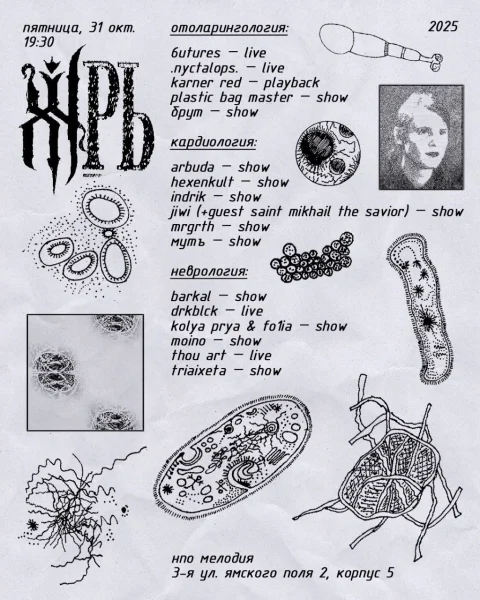 пятница, 31 окт.
19:30
2025
ЖРЬ
отоларингология:
6utures – live
.nyctalops. – live
karner red – playback
plastic bag master – show
брут – show
кардиология:
arbuda – show
hexenkult – show
indrik – show
jiwi (+guest saint mikhail the savior) – show
mrgrth – show
мутъ – show
неврология:
barkal – show
drkblck – live
kolya prya & fo1ia – show
moino – show
thou art – live
triaixeta – show
нпо мелодия
3-я ул. ямского поля 2, корпус 5